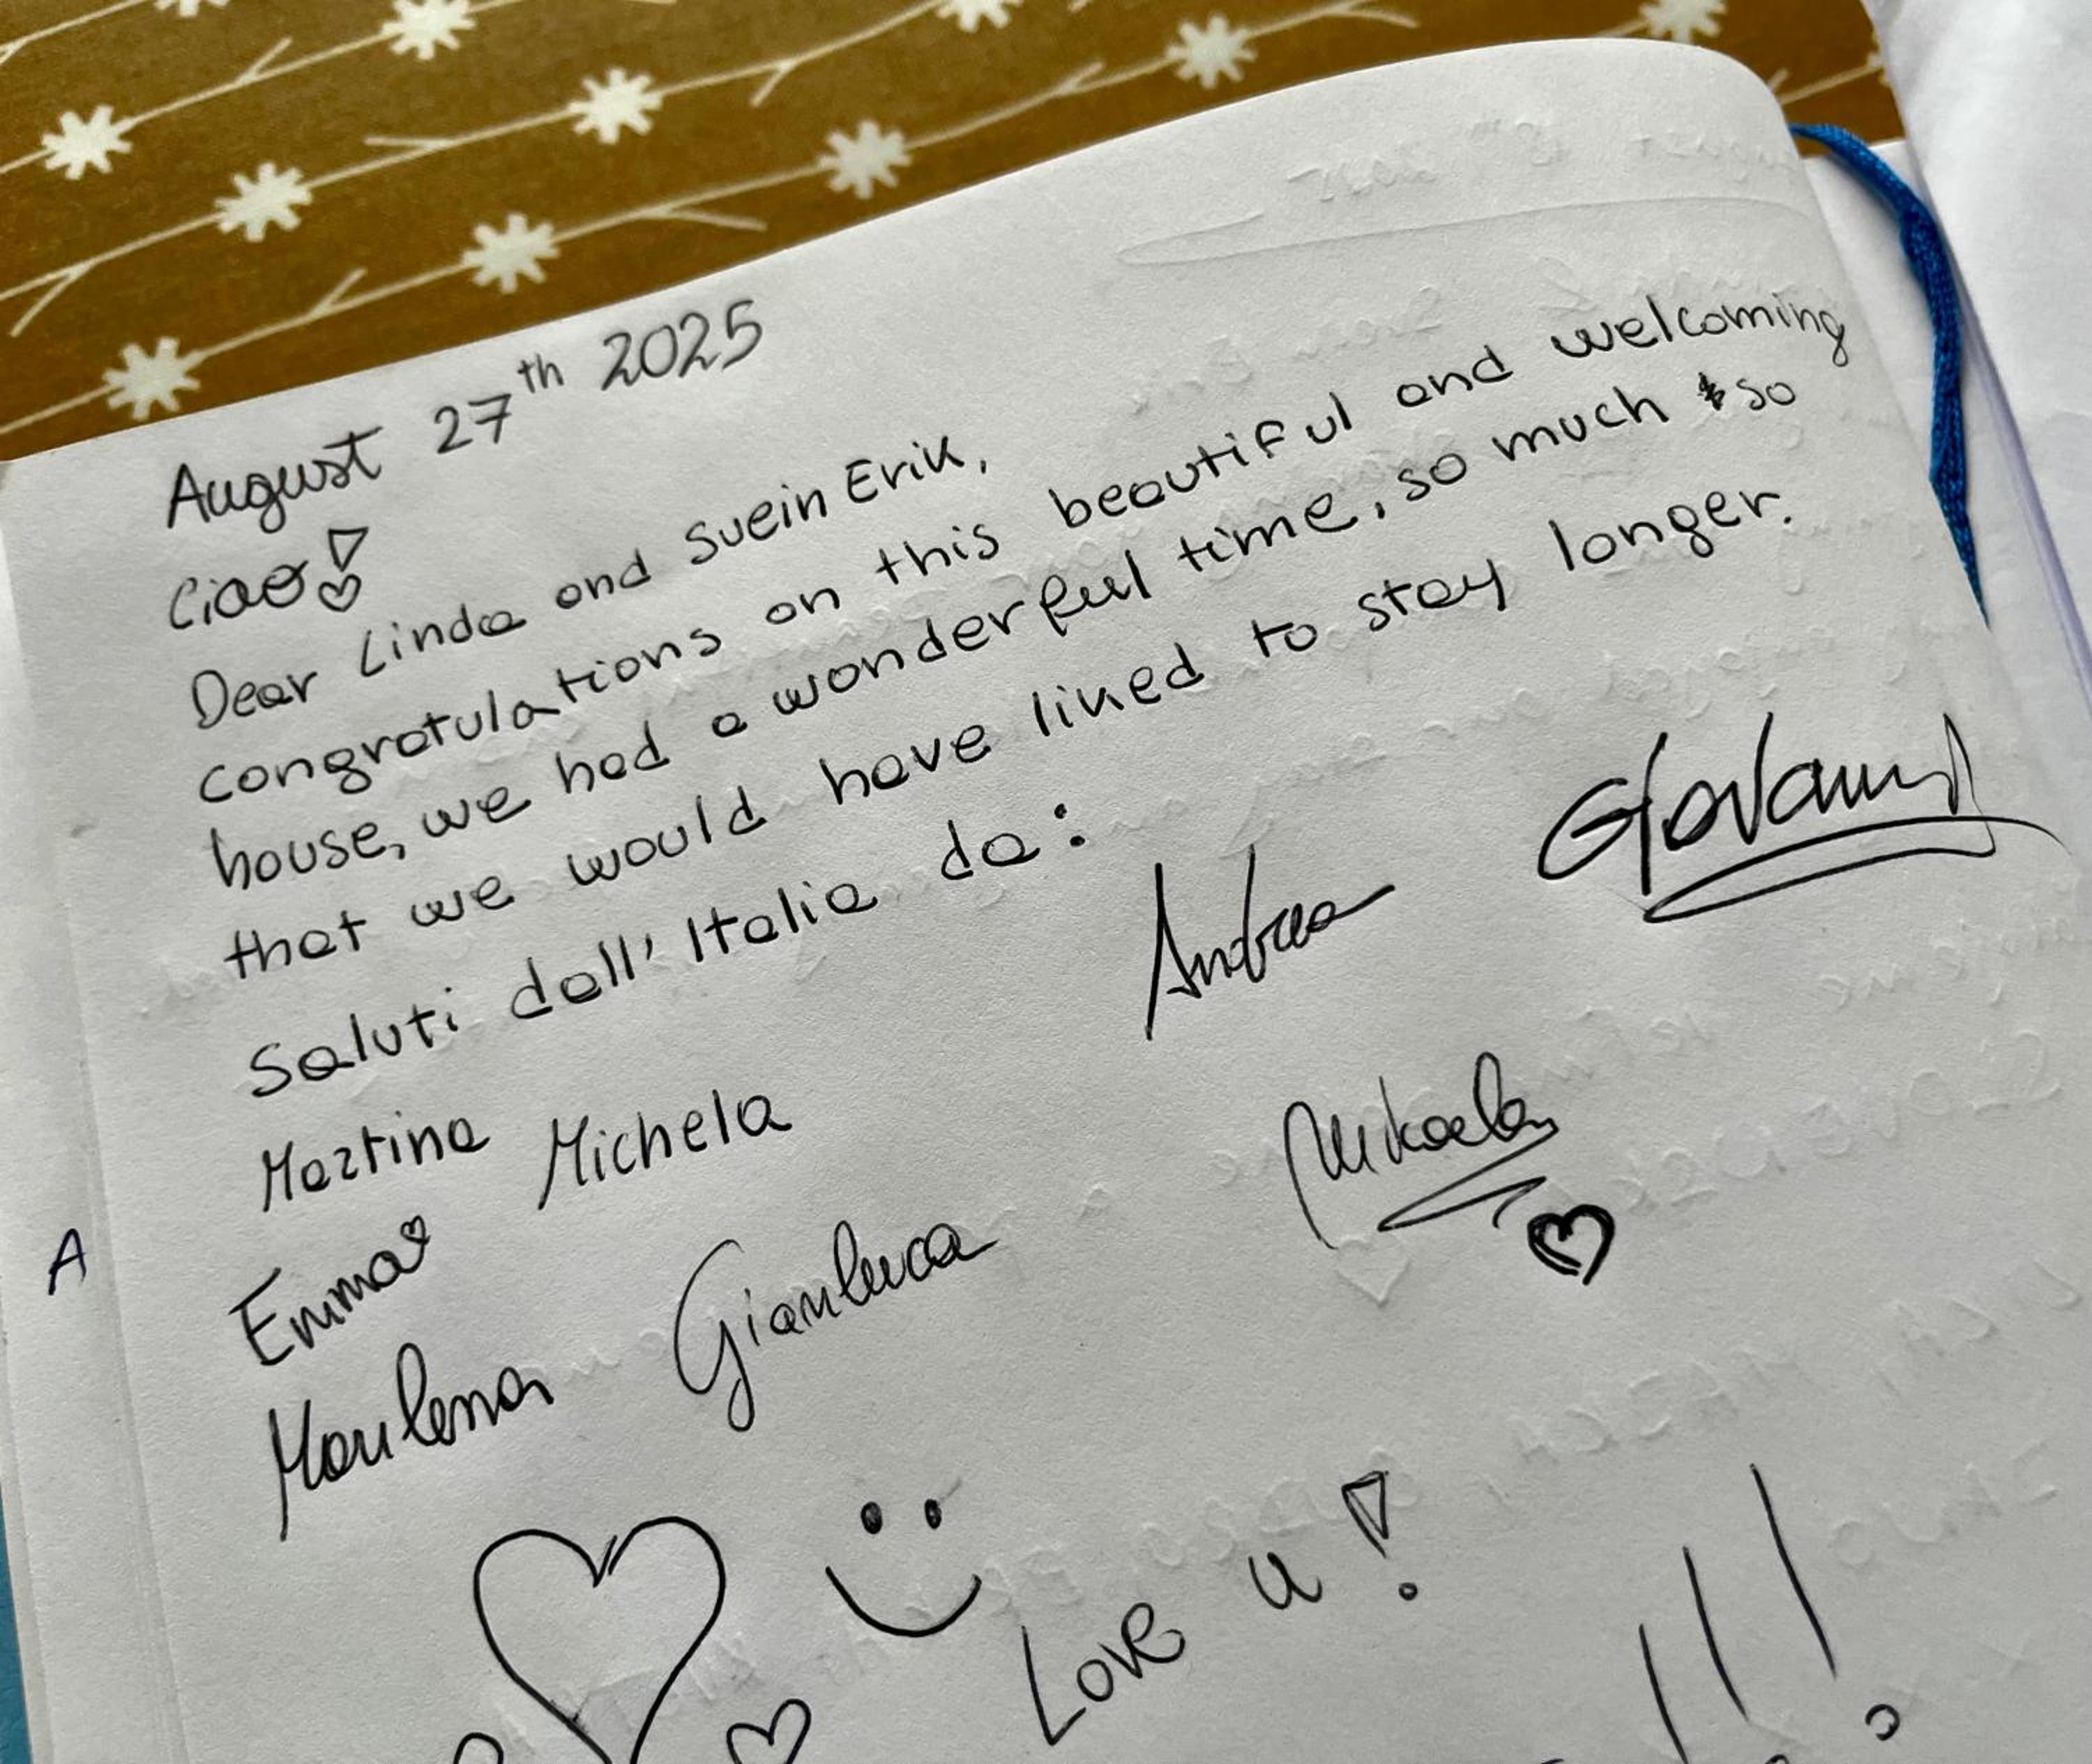 August 27th 2025
Ciao!
Dear Linda and Suein Erik,
congratulations on this beautiful and welcoming
house, we had a wonderful time, so much so
that we would have liked to stay longer.
Saluti dall' Italia da:
Andrea Giovanni
Martina Michela Mikaela
A
Emma
Marilena Gianluca
Love u!
!!!